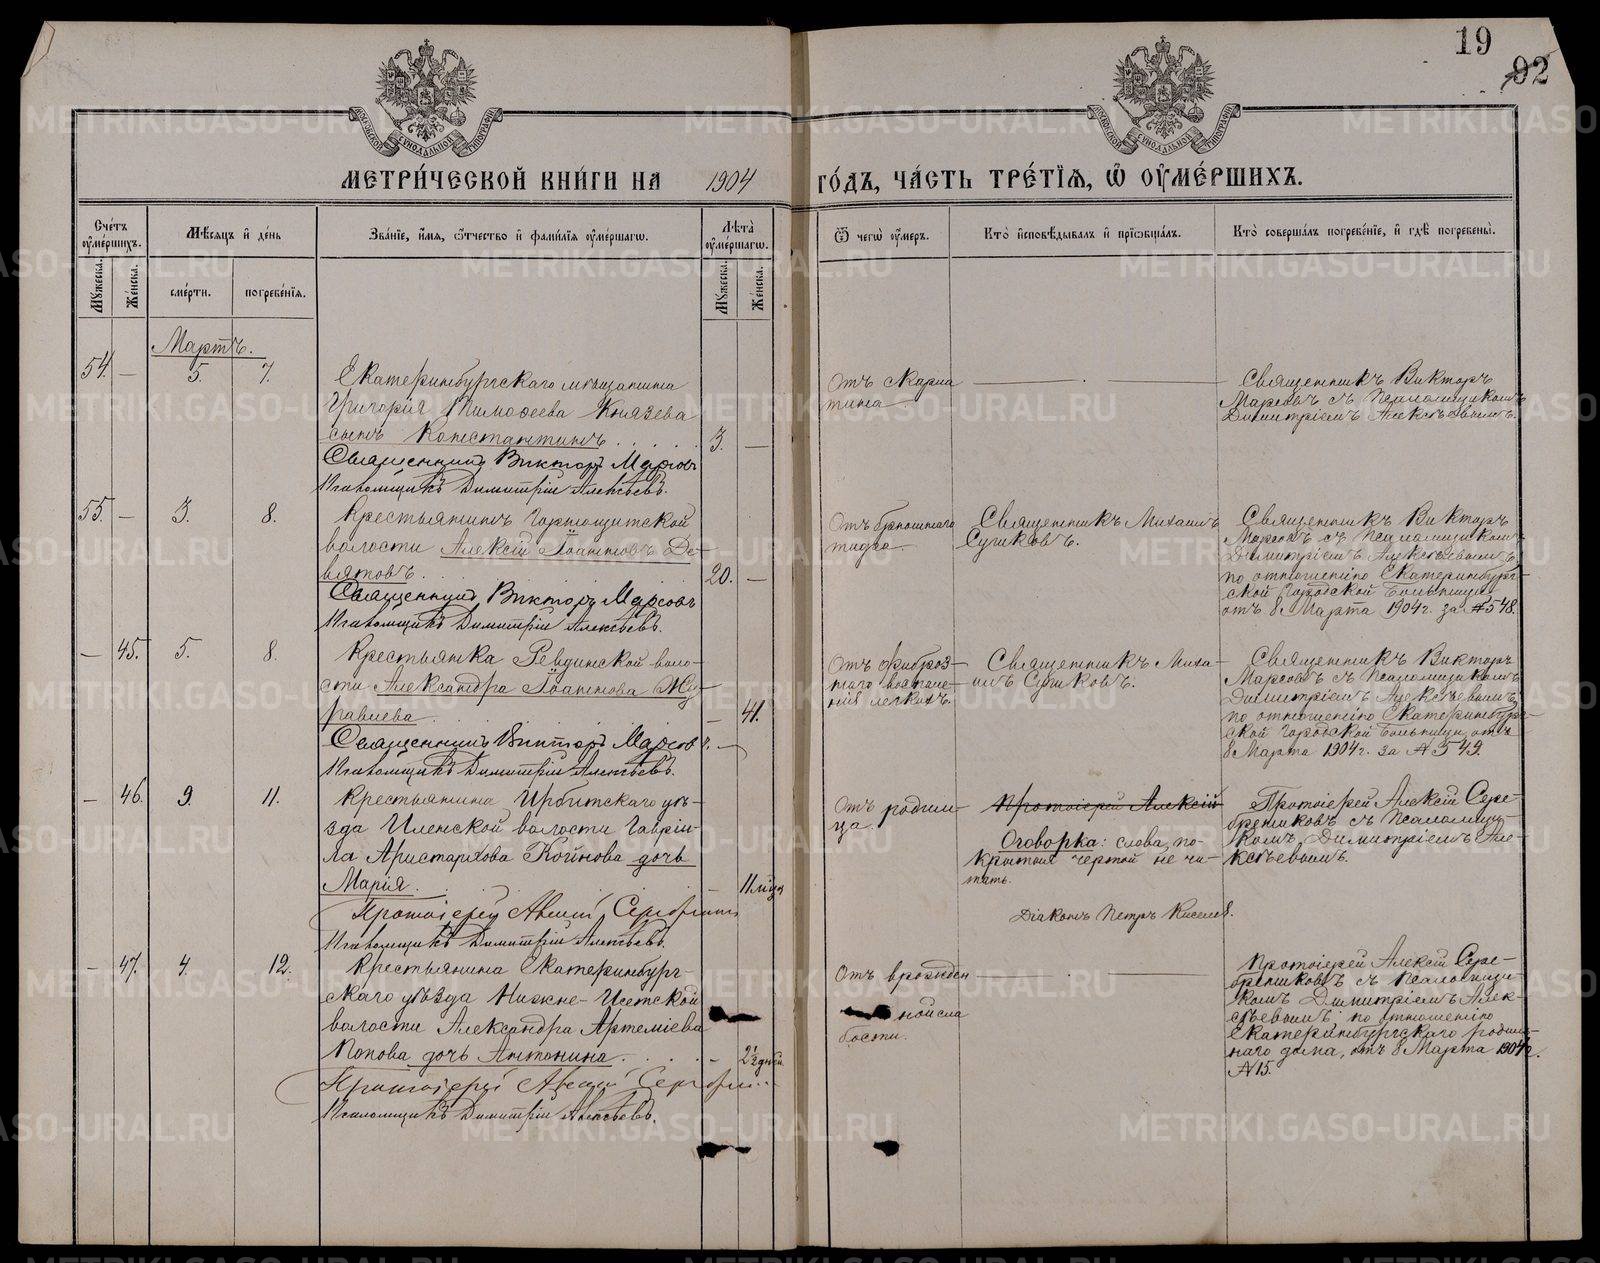 19
92
МЕТРИ́ЧЕСКОЙ КНИ́ГИ НА 1904 ГО́ДЪ, ЧА́СТЬ ТРЕ́ТЇѦ, Ѿ ОУ҆МЕ́РШИХЪ.
Сче́тъ оу҆ме́ршихъ.
Мꙋжеска.
Же́нска.
Мѣ́сѧцъ и҆ де́нь
сме́рти.
погребе́нїѧ.
Зва́нїе, и҆́мѧ, ѻ҆́тчество и҆ фами́лїѧ оу҆ме́ршагѡ.
Лѣта̀ оу҆ме́ршагѡ.
Мꙋжеска.
Же́нска.
Ѿ чегѡ̀ оу҆́меръ.
Кто̀ и҆сповѣ́дывалъ и҆ прїѡбща́лъ.
Кто̀ соверша́лъ погребе́нїе, и҆ гдѣ̀ погребены̀.
Мартъ.
54. — 5. 7.
Екатеринбургскаго мѣщанина
Григорія Тимофеева Князева
сынъ Константинъ . . . . . 3. —
Священникъ Викторъ Марсовъ
Псаломщикъ Димитрій Алексѣевъ.
Отъ скарла
тина.
Священникъ Викторъ
Марсовъ съ Псаломщикомъ
Димитріемъ Алексѣевымъ.
55. — 3. 8.
Крестьянинъ
волости Алексій Іоанновъ Де-
вятовъ. . . . 20. —
Священникъ Викторъ Марсовъ
Псаломщикъ Димитрій Алексѣевъ.
Отъ брюшнаго
тифа.
Священникъ Михаилъ
Сушковъ.
Священникъ Викторъ
Марсовъ съ Псаломщикомъ
Димитріемъ Алексѣевымъ,
по отношенію Екатеринбург-
ской Городской Больницы
отъ 8 Марта 1904 г. за № 548.
— 45. 5. 8.
Крестьянка Ревдинской воло-
сти Александра Іоаннова Жу-
равлева . . . — 41.
Священникъ Викторъ Марсовъ
Псаломщикъ Димитрій Алексѣевъ.
Отъ фиброз-
наго воспале-
нія легкихъ.
Священникъ Миха-
илъ Сушковъ.
Священникъ Викторъ
Марсовъ съ Псаломщикомъ
Димитріемъ Алексѣевымъ,
по отношенію Екатеринбург-
ской Городской Больницы, отъ
8 Марта 1904 г. за № 549.
— 46. 9. 11.
Крестьянина Ирбитскаго уѣз-
зда Иленской волости Гаврі-
ла Аристархова Койнова дочь
Марія. . . . — 11 м-цъ
Протоіерей Алексій
Псаломщикъ Димитрій Алексѣевъ.
Отъ родим-
ца.
Протоіерей Алексій
Оговорка: слова, по-
крытыя чертой не чи-
тать.
Діаконъ Петръ Киселев.
Протоіерей Алексій Сере-
бренниковъ съ Псаломщи-
комъ Димитріемъ Але-
ксѣевымъ.
— 47. 4. 12.
Крестьянина Екатеринбург-
скаго уѣзда Нижне-Исетской
волости Александра Артеміева
Попова дочь Антонина. . . . — 2½ дней
Протоіерей Алексій
Псаломщикъ Димитрій Алексѣевъ.
Отъ врожден
ной сла
бости.
Протоіерей Алексій Сере-
бренниковъ съ Псаломщи-
комъ Димитріемъ Алек-
сѣевымъ по отношенію
Екатеринбургскаго родиль-
наго дома, отъ 8 Марта 1904 г.
№ 15.
METRIKI.GASO-URAL.RU